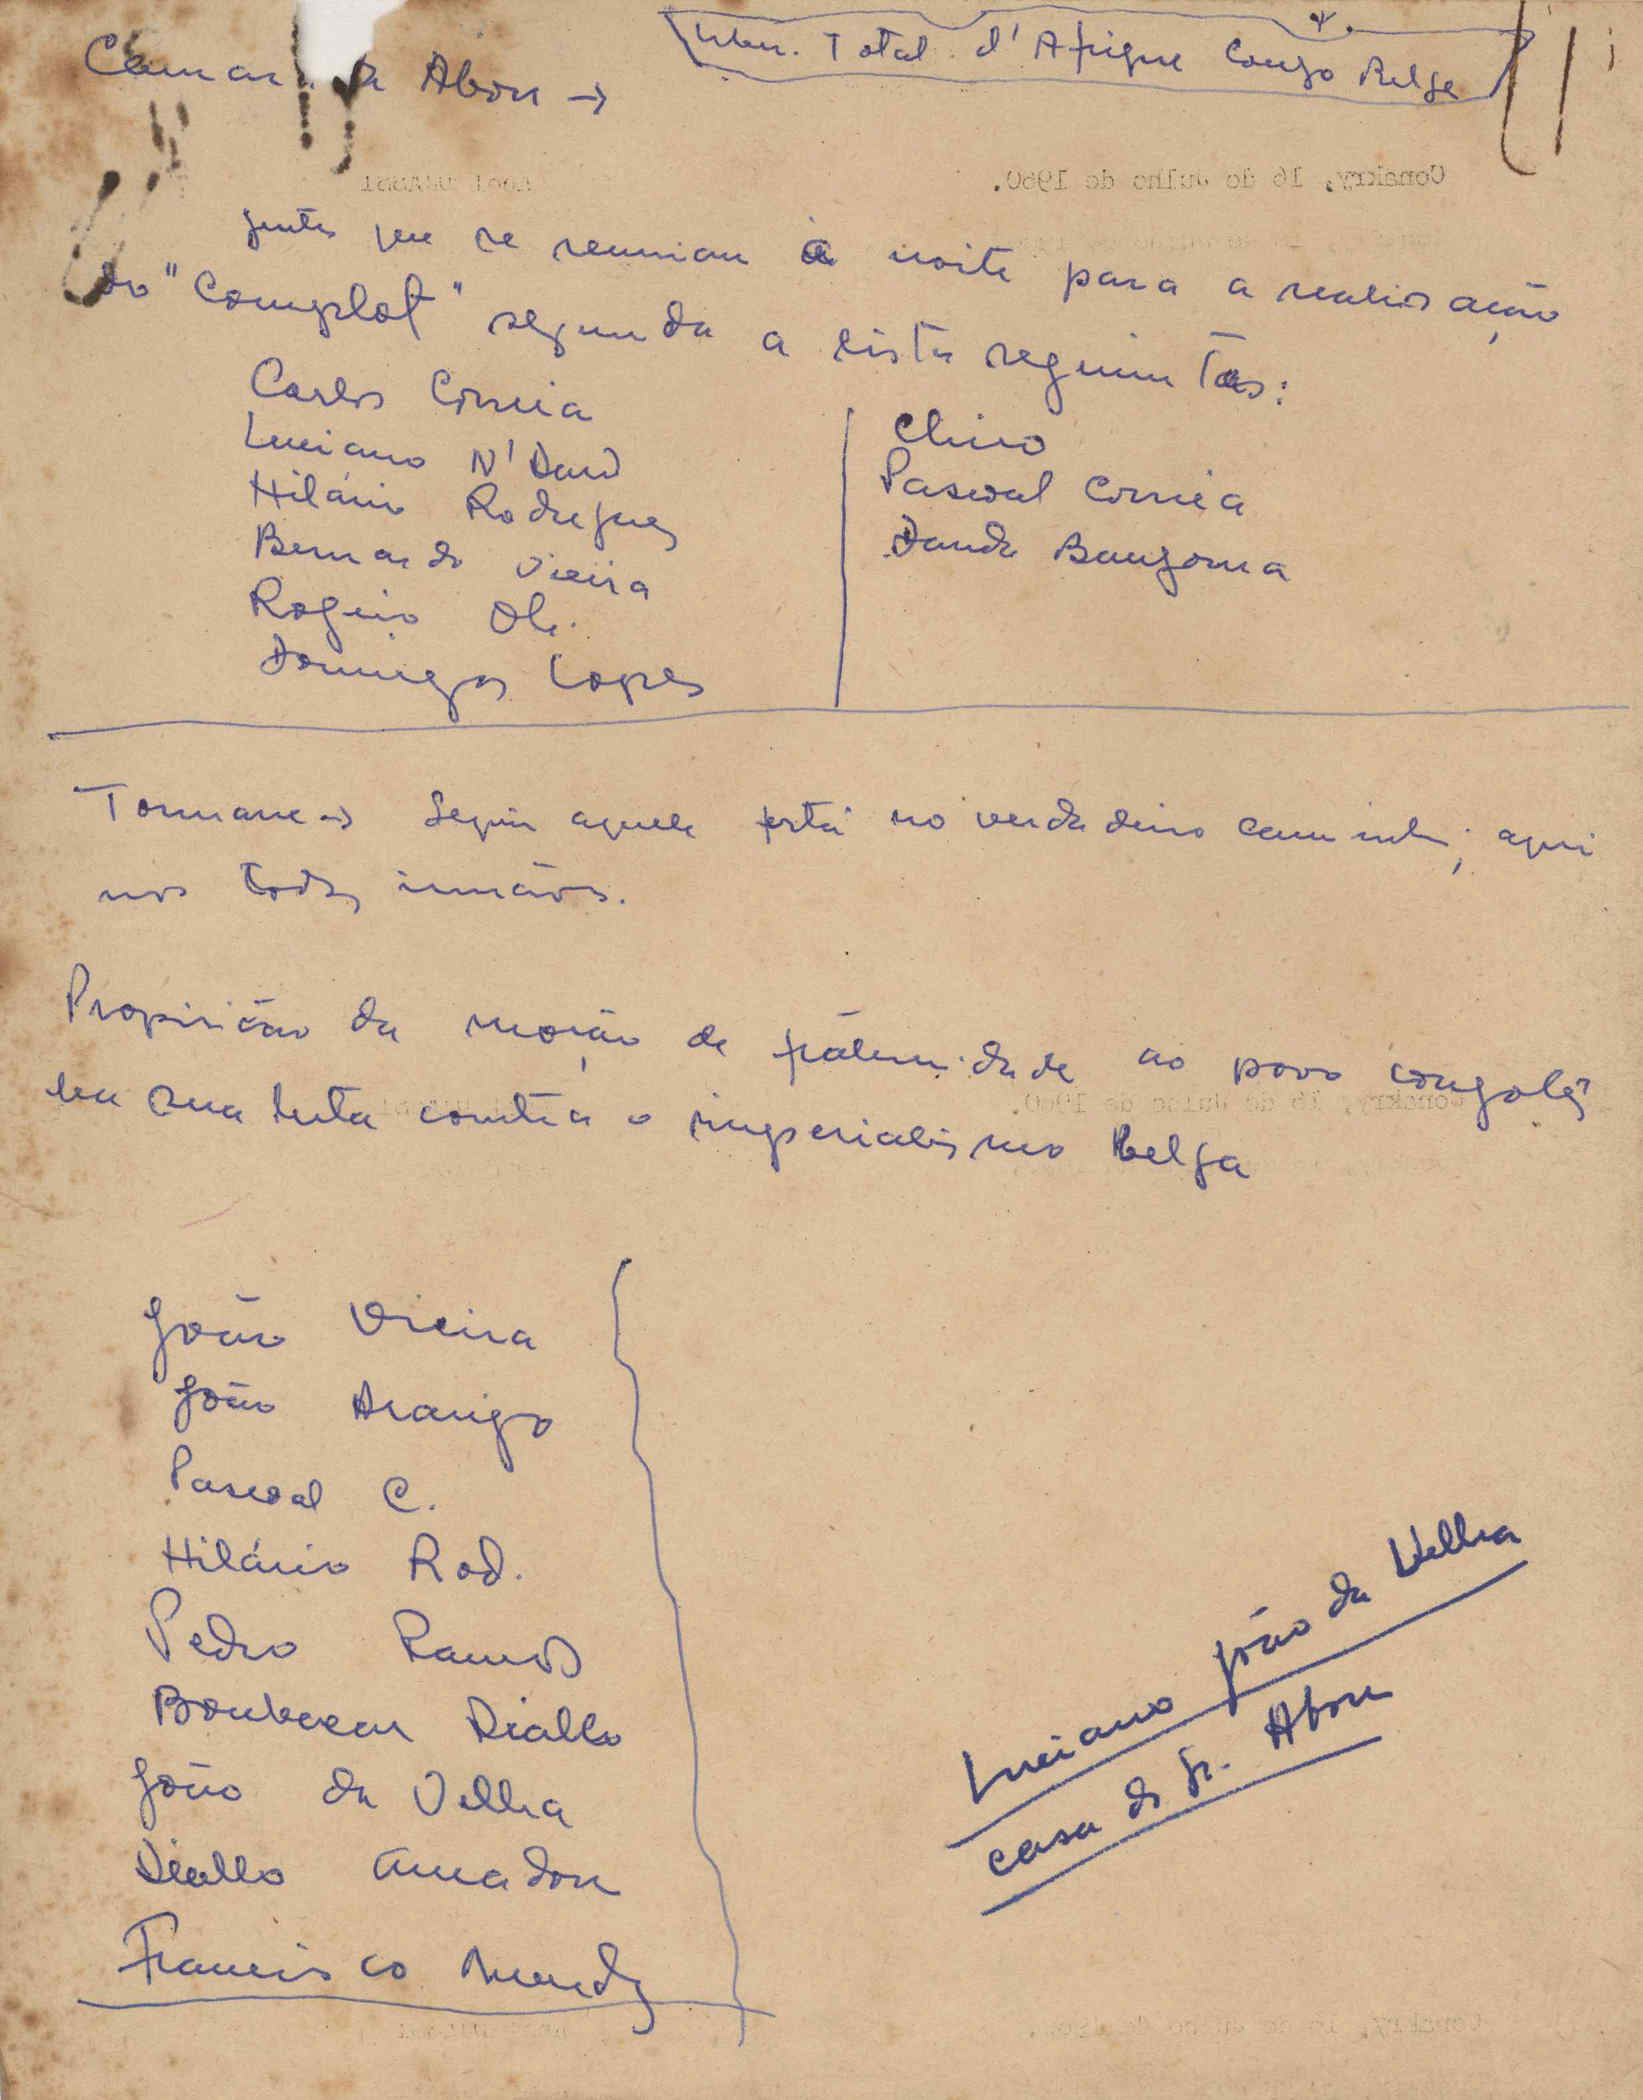 Camarada Abou → Liber. Total d'Afrique Congo Belge
Conakry, 16 de Julho de 1960.
gentes que se reuniam à noite para a realisação
do "Complot" segundo a lista seguintes:
Carlos Correia
Luciano N'Daw
Hilário Rodrigues
Bernardo Vieira
Rogerio Oli.
Domingos Lopes
Chico
Pascoal Correia
Dauda Bangoura
→ Seguir aquele está no verdadeiro caminho; aqui
nos todos irmãos.
Proposição da moção de fraternidade ao povo congolês
na sua luta contra o imperialismo Belga
João Vieira
João Araujo
Pascoal C.
Hilário Rod.
Pedro Ramos
Boubacar Diallo
João da Velha
Diallo Amadou
Francisco Mendy
Luciano João da Velha
casa do Sr. Abou
Conakry, 16 de Julho de 1960.